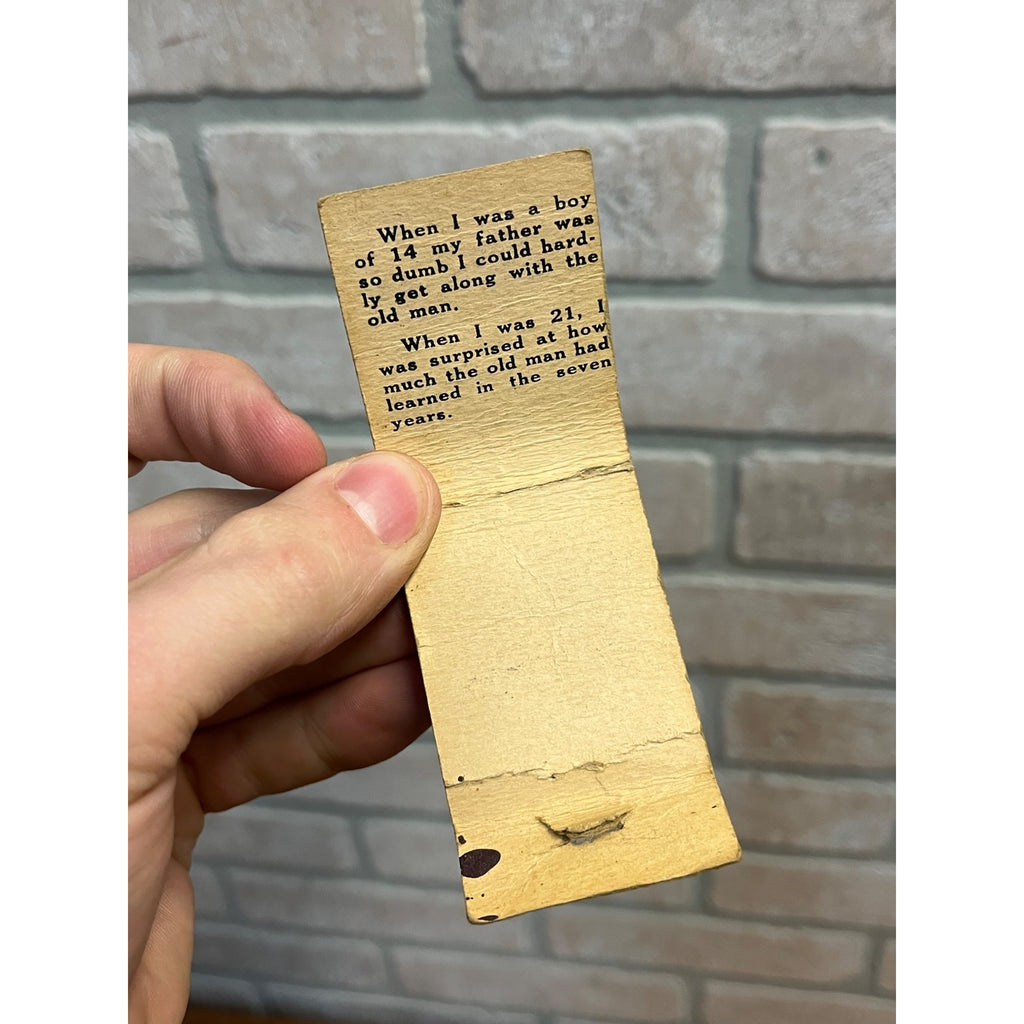 When I was a boy
of 14 my father was
so dumb I could hard-
ly get along with the
old man.
When I was 21, I
was surprised at how
much the old man had
learned in the seven
years.